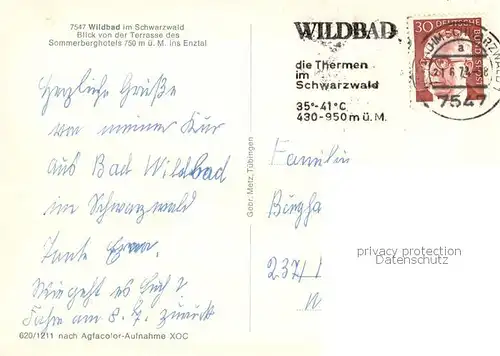 7547 Wildbad im Schwarzwald
Blick von der Terrasse des
Sommerberghotels 750 m ü. M. ins Enztal
Herzliche Grüße
von meiner Kur
aus Bad Wildbad
im Schwarzwald
Tante Erna.
Wie geht es Euch?
Fahre am 8. 7. zurück
620/1211 nach Agfacolor-Aufnahme XOC
Gebr. Metz, Tübingen
WILDBAD
die Thermen
im
Schwarzwald
35°-41°C
430-950 m ü. M.
30 DEUTSCHE BUNDESPOST
a
7547
Familie
237/
privacy protection
Datenschutz